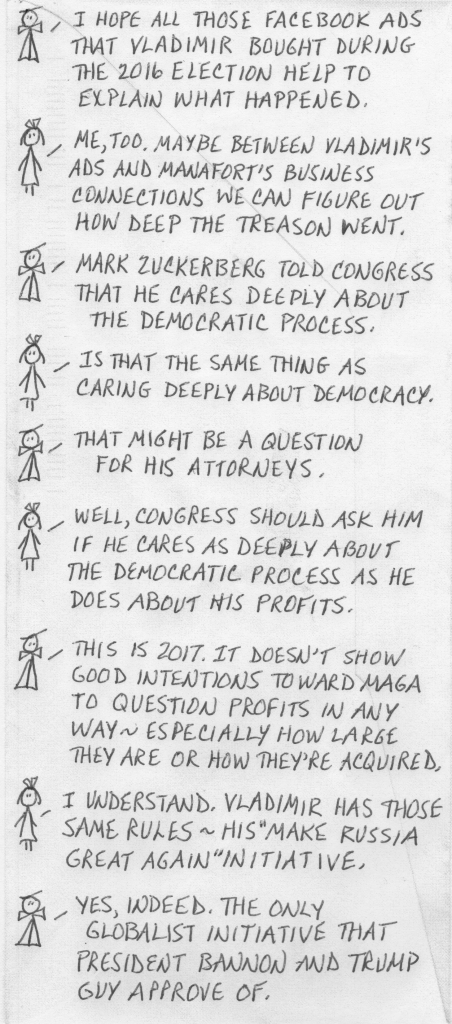 I HOPE ALL THOSE FACEBOOK ADS
THAT VLADIMIR BOUGHT DURING
THE 2016 ELECTION HELP TO
EXPLAIN WHAT HAPPENED.
ME, TOO. MAYBE BETWEEN VLADIMIR'S
ADS AND MANAFORT'S BUSINESS
CONNECTIONS WE CAN FIGURE OUT
HOW DEEP THE TREASON WENT.
MARK ZUCKERBERG TOLD CONGRESS
THAT HE CARES DEEPLY ABOUT
THE DEMOCRATIC PROCESS.
IS THAT THE SAME THING AS
CARING DEEPLY ABOUT DEMOCRACY.
THAT MIGHT BE A QUESTION
FOR HIS ATTORNEYS.
WELL, CONGRESS SHOULD ASK HIM
IF HE CARES AS DEEPLY ABOUT
THE DEMOCRATIC PROCESS AS HE
DOES ABOUT HIS PROFITS.
THIS IS 2017. IT DOESN'T SHOW
GOOD INTENTIONS TOWARD MAGA
TO QUESTION PROFITS IN ANY
WAY ~ ESPECIALLY HOW LARGE
THEY ARE OR HOW THEY'RE ACQUIRED.
I UNDERSTAND. VLADIMIR HAS THOSE
SAME RULES ~ HIS "MAKE RUSSIA
GREAT AGAIN" INITIATIVE.
YES, INDEED. THE ONLY
GLOBALIST INITIATIVE THAT
PRESIDENT BANNON AND TRUMP
GUY APPROVE OF.